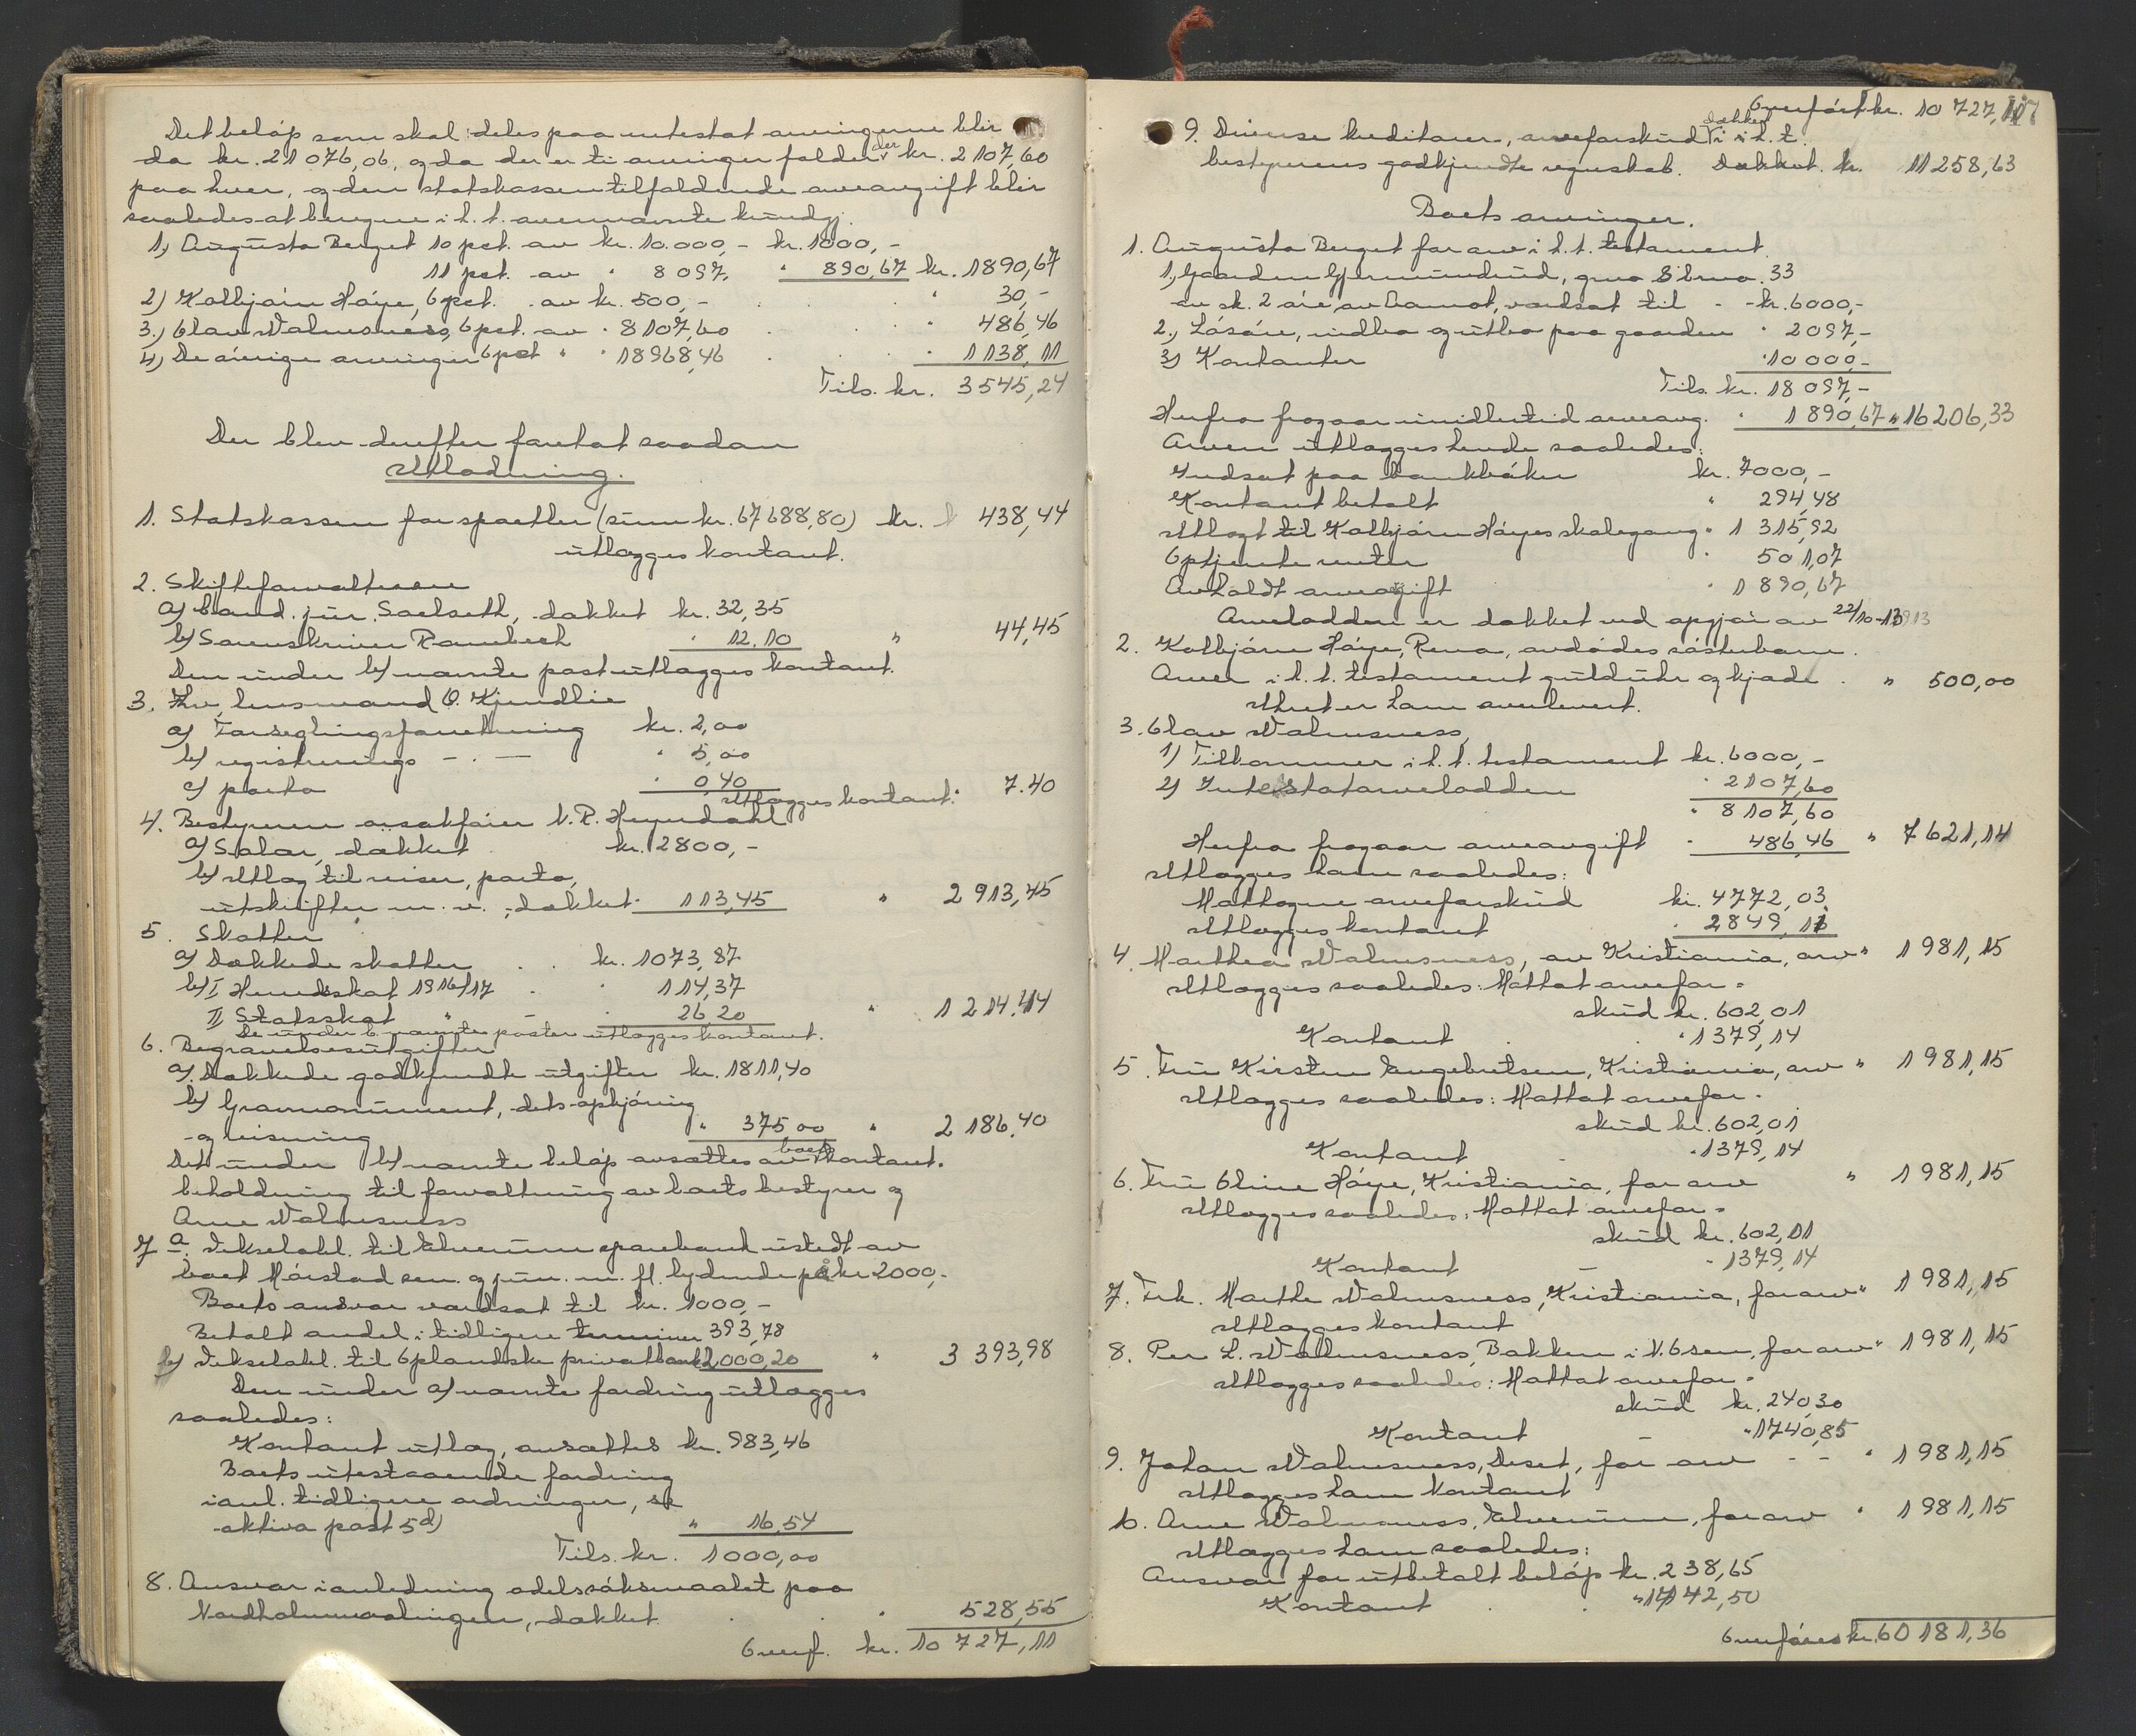 Det beløp som skal deles paa intestat arvingerne blir
da kr. 21 076,06, og da der er ti arvinger falder der kr. 2 107,60
paa hver, og den statskassen tilfaldende arveavgift blir
saaledes at beregne i h. t. ovennævnte kundgj.
1.) Augusta Berget 10 pct. av kr. 10.000,- kr. 1000,-
11 pct. av " 8 097, " 890,67 kr. 1890,67
2) Kolbjørn Høye, 6 pct. av kr. 500,- " 30,-
3.) Olav Valmsness, 6 pct. av " 8107,60 " 486,46
4.) De øvrige arvinger 6 pct " " 18968,46 " 1138,11
Tils. kr. 3545,24
Der blev derefter foretat saadan
Utlodning.
1. Statskassen for sportler (sum kr. 67 688,80) kr. 438,44
utlægges kontant.
2. Skifteforvalteren
a) Cand. jur. Saelseth, dækket kr. 32,35
b) Sorenskriver Rambech " 12.10 " 44,45
Den under b) nævnte post utlægges kontant.
3. Fhv. lensmand O. Kjendlie
a) Forseglingsforretning kr. 2,00
b) registrerings - . - " 5,00
c) porto " 0,40
Utlægges kontant. " 7.40
4. Bestyreren o.r.sakfører N. R. Heyerdahl
a) Salær, dækket kr. 2800,-
b) Utlæg til reiser, porto,
utskrifter m. v., dækket " 113,45 " 2 913,45
5. Skatter
a) Dækkede skatter . . kr. 1073,87
b) I Herredskat 1916/17 . " 114,37
II Statsskat " - " 26 20 " 1 214.44
De under b nævnte poster utlægges kontant.
6. Begravelsesutgifter
a) Dækkede godkjendte utgifter kr. 1811,40
b) Gravmonument, dets opkjøring
og reisning " 375,00 " 2 186,40
Det under b) nævnte beløp avsættes av boets kontant-
beholdning til forvaltning av boets bestyrer og
Arne Valmsness
7 a. Vekselobl. til Elverum sparebank utstedt av
boet Mørstad sen. og jun. m. fl. lydende på kr 2000,-
Boets ansvar værdsat til kr. 1000,-
Betalt andel i tidligere terminer 393,78
b) Vekselobl. til Oplandske privatbank 2000,20 " 3 393,98
Den under a) nævnte fordring utlægges
saaledes:
Kontant utlæg, ansættes kr. 983,46
Boets utestaaende fordring
i anl. tidligere ordninger, se
aktiva post 5 d) " 16,54
Tils. kr. 1000,00
8. Ansvar i anledning odelssøksmaalet paa
Nordholmvaalingen, dækket. . . " 528,55
Overf. kr. 10 727,11
Overført kr. 10 727,11
9. Diverse kreditorer, arveforskud dækket i h. t.
bestyrerens godkjendte regnskab. Dækket. kr. 11 258,63
Boets arvinger.
1. Augusta Berget faar arv i h. t. testament.
1.) Gaarden Gjermundrud, gno 8 brno. 33
av sk. 2 øre av Aamot, værdsat til - - kr. 6000,-
2.) Løsøre, indbo og utbo paa gaarden " 2097,-
3) Kontanter " 10 000,-
Tils. kr. 18 097,-
Herfra fragaar imidlertid arveavg. " 1 890,67 " 16 206,33
Arven utlægges hende saaledes:
Indsat paa bankbøker kr. 7000,-
Kontant betalt " 294,48
Utlagt til Kolbjørn Høyes skolegang " 1 315,92
Optjente renter " 501,07
Avholdt arveavgift " 1 890,67
Arvelodden er dækket ved opgjør av 22/10-1913
2. Kolbjørn Høye, Rena, avdødes søsterbarn.
Arver i h. t. testament guldur og kjæde . " 500,00
Uhret er ham avlevert.
3. Olav Valmsness,
1) Tilkommer i h. t. testament kr. 6000,-
2) Intestatarvelodden " 2107,60
" 8 107,60
Herfra fragaar arveavgift " 486,46 " 7 621,14
Utlægges ham saaledes:
Mottagne arveforskud kr. 4772,03
Utlægges kontant " 2849,11
4. Marthea Valmsness, av Kristiania, arv " 1 981,15
Utlægges saaledes: Mottat arvefor-
skud kr. 602,01
Kontant . . " 1379,14
5. Fru Kirsten Engebretsen, Kristiania, arv " 1 981,15
Utlægges saaledes: Mottat arvefor-
skud kr. 602,01
Kontant . " 1379,14
6. Fru Oline Høye, Kristiania, faar arv " 1 981,15
Utlægges saaledes: Mottat arvefor-
skud kr. 602,01
Kontant - " 1379,14
7. Frk. Marthe Valmsness, Kristiania, faar arv " 1 981,15
Utlægges kontant
8. Per L. Valmsness, Bakken i N. Osen, faar arv " 1 981,15
Utlægges saaledes: Mottat arvefor-
skud kr. 240,30
Kontant - " 1740,85
9. Johan Valmsness, Deset, faar arv - - " 1 981,15
Utlægges ham kontant
10. Arne Valmsness, Elverum, faar arv " 1 981,15
Utlægges ham saaledes:
Ansvar for utbetalt beløp kr. 238,65
Kontant . . " 1742,50
Overføres kr. 60 181,36